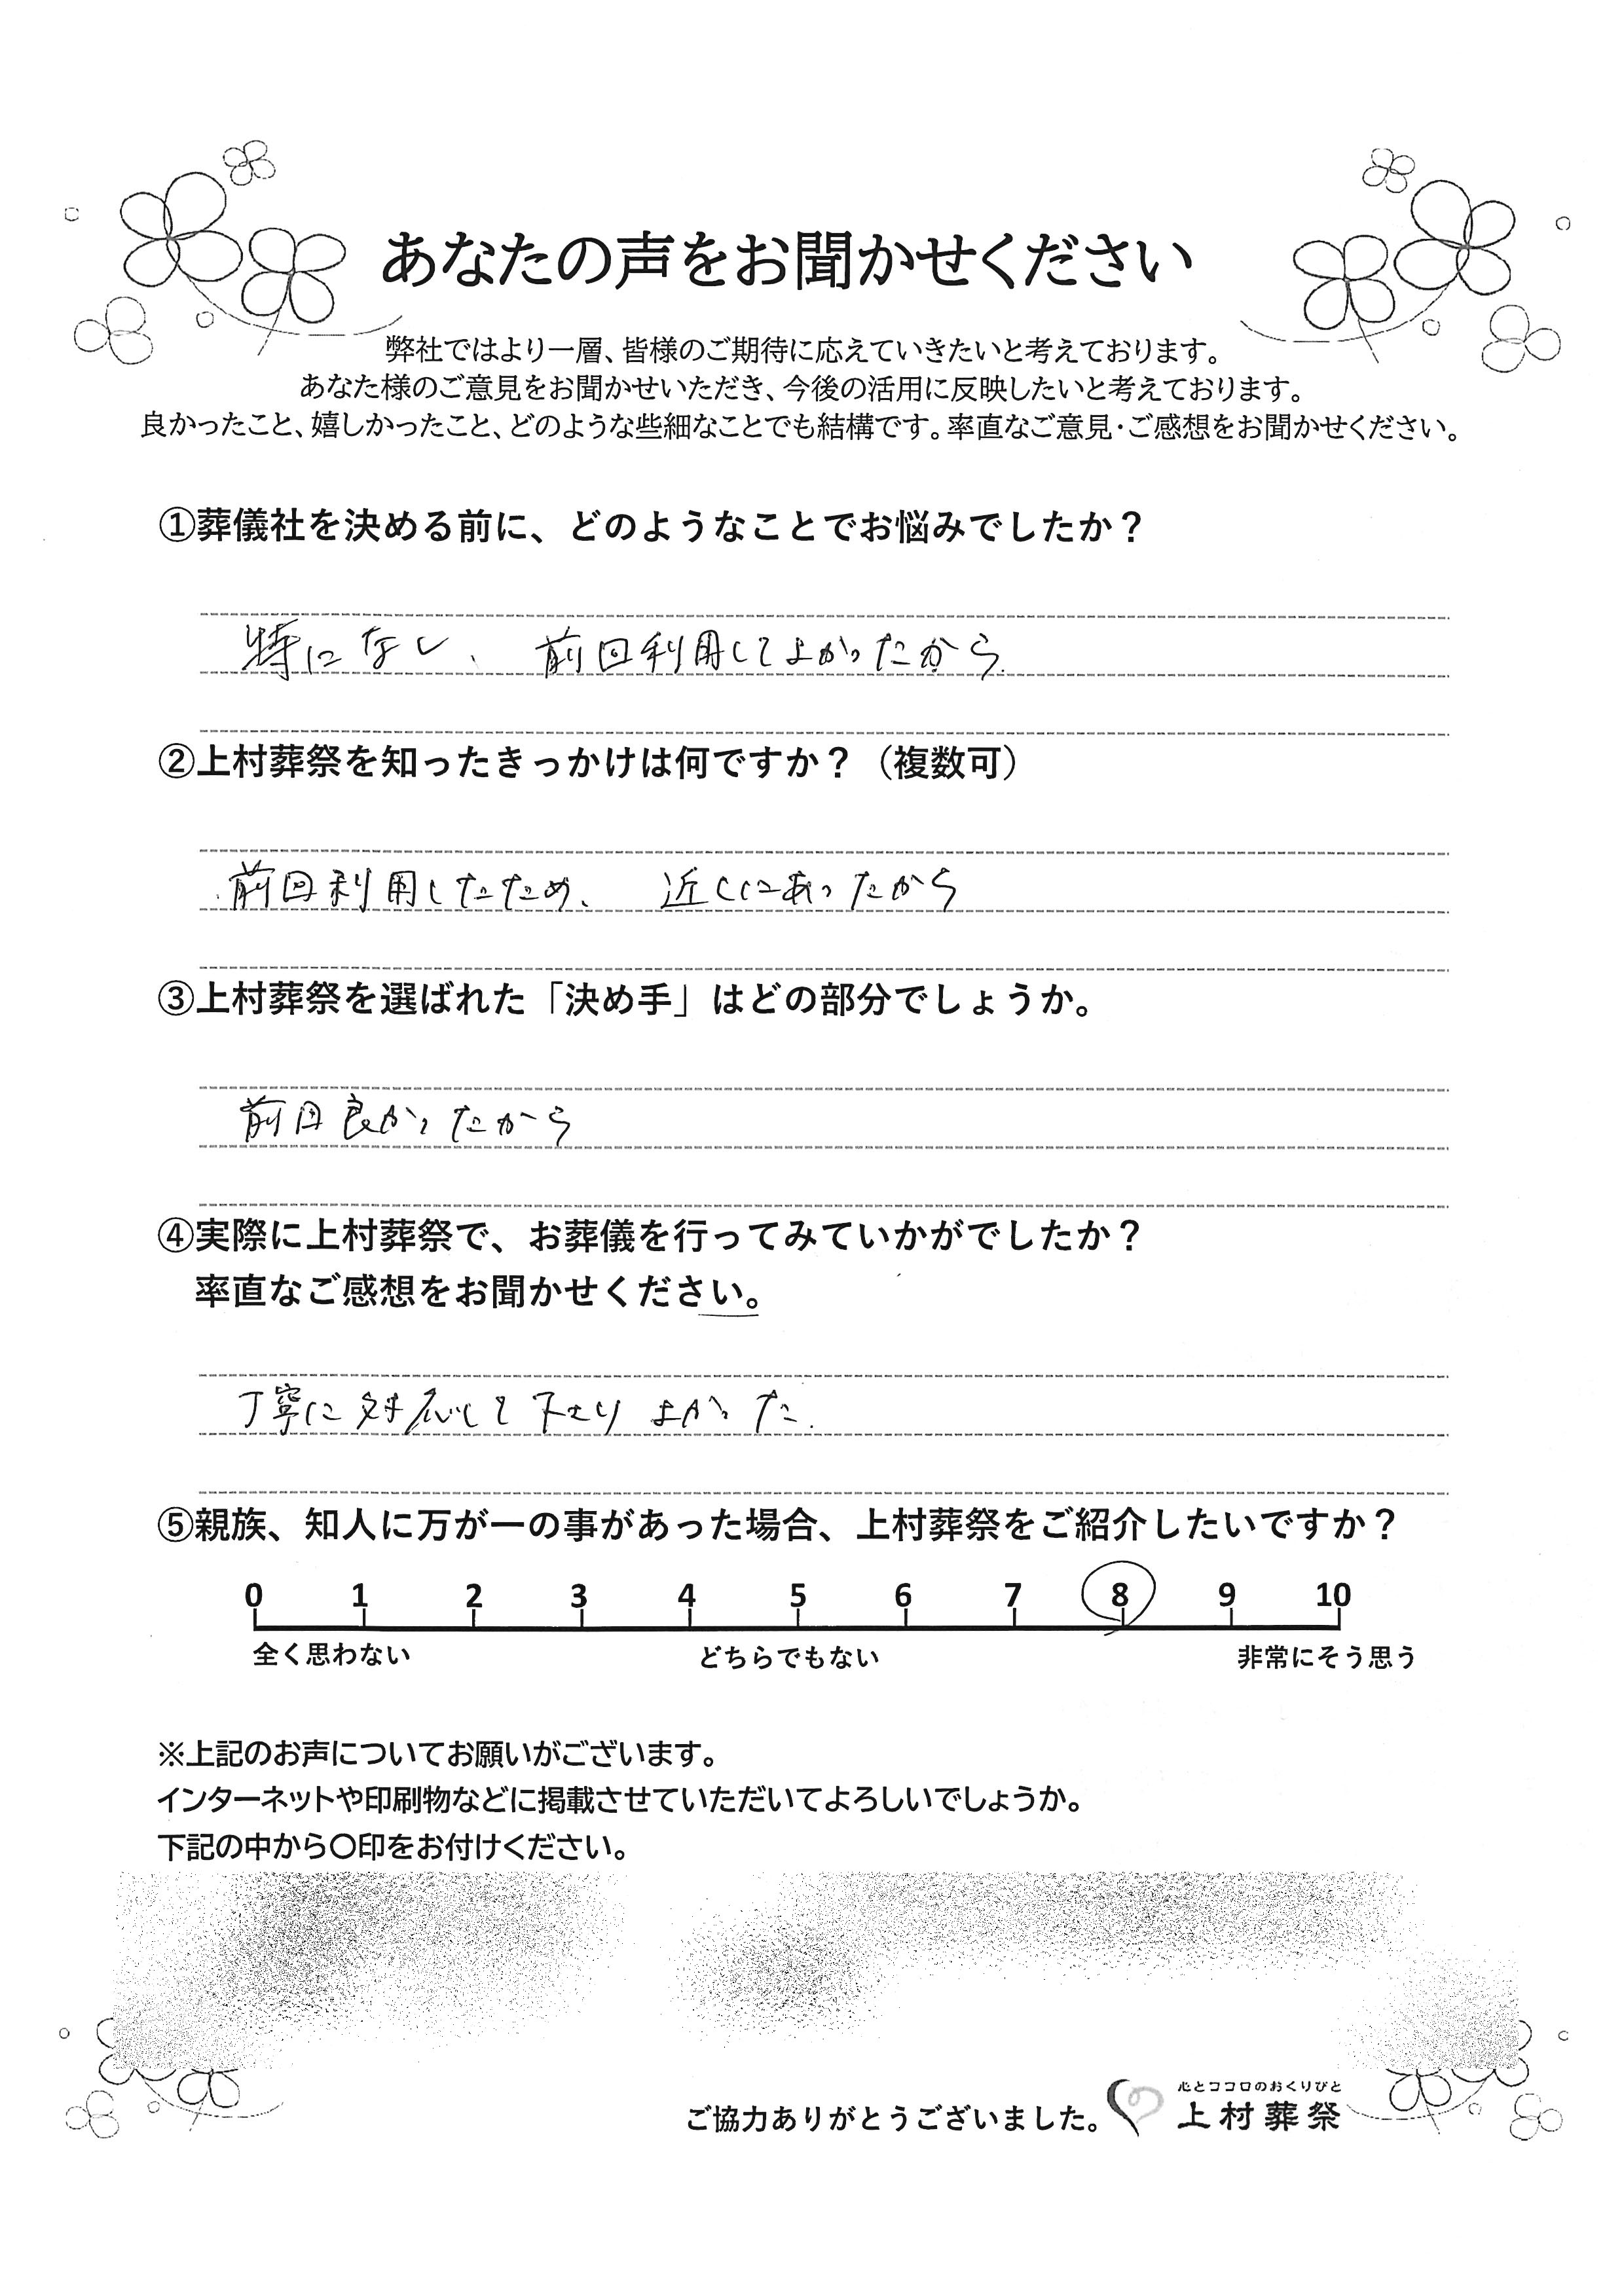 あなたの声をお聞かせください
弊社ではより一層、皆様のご期待に応えていきたいと考えております。
あなた様のご意見をお聞かせいただき、今後の活用に反映したいと考えております。
良かったこと、嬉しかったこと、どのような些細なことでも結構です。率直なご意見・ご感想をお聞かせください。
①葬儀社を決める前に、どのようなことでお悩みでしたか？
特になし、 前回利用してよかったから.
②上村葬祭を知ったきっかけは何ですか？（複数可）
前回利用したため、 近くにあったから
③上村葬祭を選ばれた「決め手」はどの部分でしょうか。
前回良かったから
④実際に上村葬祭で、お葬儀を行ってみていかがでしたか？
率直なご感想をお聞かせください。
丁寧に対応して下さりよかった.
⑤親族、知人に万が一の事があった場合、上村葬祭をご紹介したいですか？
0 1 2 3 4 5 6 7 8 9 10
全く思わない どちらでもない 非常にそう思う
※上記のお声についてお願いがございます。
インターネットや印刷物などに掲載させていただいてよろしいでしょうか。
下記の中から〇印をお付けください。
心とココロのおくりびと
ご協力ありがとうございました。 上村葬祭